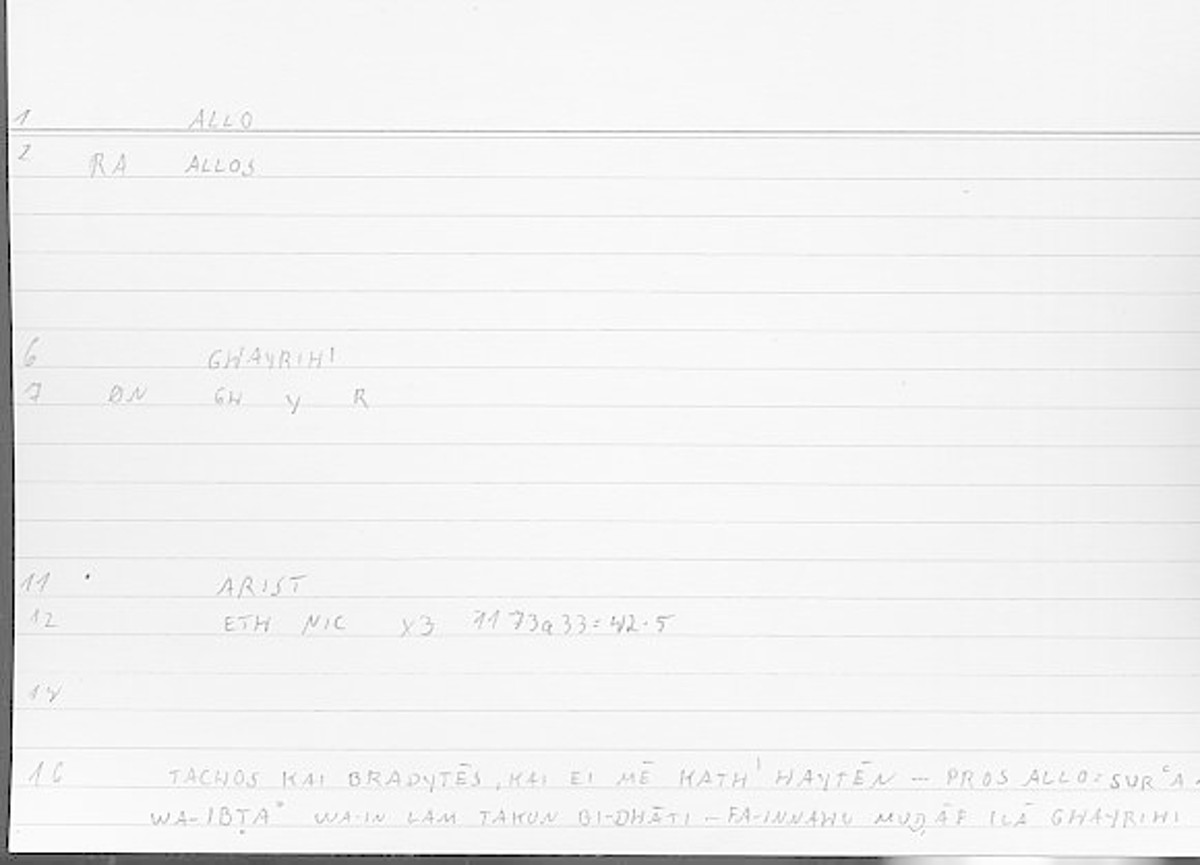 1 ALLO
2 RA ALLOS
6 GHAYRIHI
7 ØN GH Y R
11 ARIST
12 ETH NIC X3 1173a33=42.5
14
16 TACHOS KAI BRADYTĒS, KAI EI MĒ KATH' HAYTĒN -- PROS ALLO= SURʿA
WA-IBṬAʾ WA-IN LAM TAKUN BI-DHĀTI – FA-INNAHU MUḌĀF ILĀ GHAYRIHI